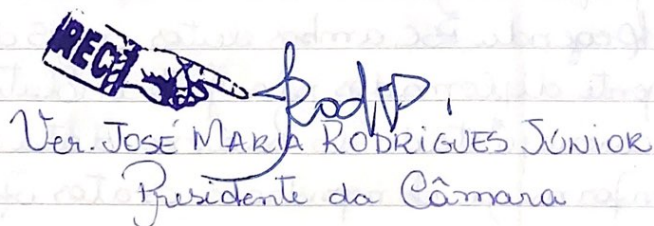 REC.
Ver. JOSÉ MARIA RODRIGUES JÚNIOR
Presidente da Câmara